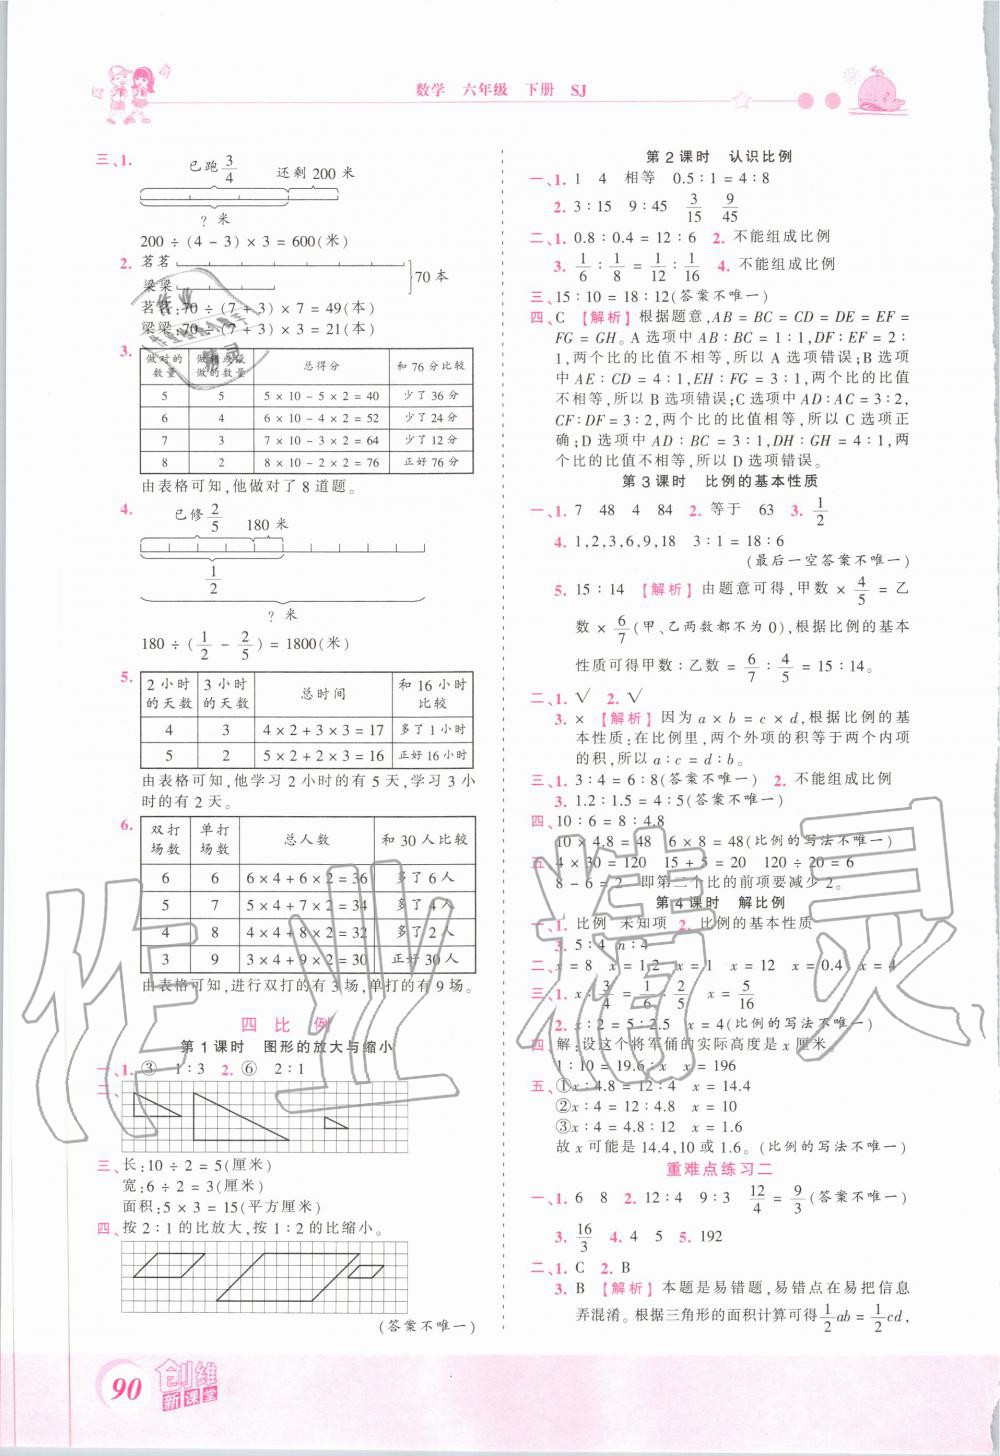 数学 六年级 下册 SJ
三、1.
已跑3/4 还剩 200 米
? 米
200 ÷ (4 - 3) × 3 = 600(米)
2. 茗茗
梁梁
70 本
茗茗:70 ÷ (7 + 3) × 7 = 49(本)
梁梁:70 ÷ (7 + 3) × 3 = 21(本)
3.
做对的数量 做错或没做的数量 总得分 和 76 分比较
5 5 5 × 10 - 5 × 2 = 40 少了 36 分
6 4 6 × 10 - 4 × 2 = 52 少了 24 分
7 3 7 × 10 - 3 × 2 = 64 少了 12 分
8 2 8 × 10 - 2 × 2 = 76 正好 76 分
由表格可知,他做对了 8 道题。
4.
已修2/5 180 米
1/2
? 米
180 ÷ (1/2 - 2/5) = 1800(米)
5.
2 小时的天数 3 小时的天数 总时间 和 16 小时比较
4 3 4 × 2 + 3 × 3 = 17 多了 1 小时
5 2 5 × 2 + 2 × 3 = 16 正好 16 小时
由表格可知,他学习 2 小时的有 5 天,学习 3 小
时的有 2 天。
6.
双打场数 单打场数 总人数 和 30 人比较
6 6 6 × 4 + 6 × 2 = 36 多了 6 人
5 7 5 × 4 + 7 × 2 = 34 多了 4 人
4 8 4 × 4 + 8 × 2 = 32 多了 2 人
3 9 3 × 4 + 9 × 2 = 30 正好 30 人
由表格可知,进行双打的有 3 场,单打的有 9 场。
四 比 例
第 1 课时 图形的放大与缩小
一、1. ③ 1∶3 2. ⑥ 2∶1
二、
三、长:10 ÷ 2 = 5(厘米)
宽:6 ÷ 2 = 3(厘米)
面积:5 × 3 = 15(平方厘米)
四、按 2∶1 的比放大,按 1∶2 的比缩小。
(答案不唯一)
第 2 课时 认识比例
一、1. 1 4 相等 0.5∶1 = 4∶8
2. 3∶15 9∶45 3/15 9/45
二、1. 0.8∶0.4 = 12∶6 2. 不能组成比例
3. 1/6∶1/8 = 1/12∶1/16 4. 不能组成比例
三、15∶10 = 18∶12(答案不唯一)
四、C 【解析】根据题意,AB = BC = CD = DE = EF =
FG = GH。A 选项中 AB∶BC = 1∶1,DF∶EF = 2∶
1,两个比的比值不相等,所以 A 选项错误;B 选项
中 AE∶CD = 4∶1,EH∶FG = 3∶1,两个比的比值
不相等,所以 B 选项错误;C 选项中 AD∶AC = 3∶2,
CF∶DF = 3∶2,两个比的比值相等,所以 C 选项正
确;D 选项中 AD∶BC = 3∶1,DH∶GH = 4∶1,两
个比的比值不相等,所以 D 选项错误。
第 3 课时 比例的基本性质
一、1. 7 48 4 84 2. 等于 63 3. 1/2
4. 1,2,3,6,9,18 3∶1 = 18∶6
(最后一空答案不唯一)
5. 15∶14 【解析】由题意可得,甲数 × 4/5 = 乙
数 × 6/7(甲、乙两数都不为 0),根据比例的基本
性质可得甲数∶乙数 = 6/7∶4/5 = 15∶14。
二、1. √ 2. √
3. × 【解析】因为 a × b = c × d,根据比例的基
本性质:在比例里,两个外项的积等于两个内项
的积,所以 a∶c = d∶b。
三、1. 3∶4 = 6∶8(答案不唯一) 2. 不能组成比例
3. 1.2∶1.5 = 4∶5(答案不唯一)
四、10∶6 = 8∶4.8
10 × 4.8 = 48 6 × 8 = 48(比例的写法不唯一)
五、4 × 30 = 120 15 + 5 = 20 120 ÷ 20 = 6
8 - 6 = 2 即第二个比的前项要减少 2。
第 4 课时 解比例
一、1. 比例 未知项 2. 比例的基本性质
3. 5∶4 n∶4
二、x = 8 x = 1.2 x = 1 x = 12 x = 0.4 x = 4
三、1. x∶3/4 = 1/6∶2/5 x = 5/16
2. x∶2 = 5∶2.5 x = 4(比例的写法不唯一)
四、解:设这个将军俑的实际高度是 x 厘米。
1∶10 = 19.6∶x x = 196
五、①x∶4.8 = 12∶4 x = 14.4
②x∶4 = 12∶4.8 x = 10
③x∶4 = 4.8∶12 x = 1.6
故 x 可能是 14.4,10 或 1.6。(比例的写法不唯一)
重难点练习二
一、1. 6 8 2. 12∶4 9∶3 12/4 = 9/3(答案不唯一)
3. 16/3 4. 4 5 5. 192
二、1. C 2. B
3. B 【解析】本题是易错题,易错点在易把信息
弄混淆。根据三角形的面积计算可得1/2ab = 1/2cd,
90 创维
新课堂
作业精灵